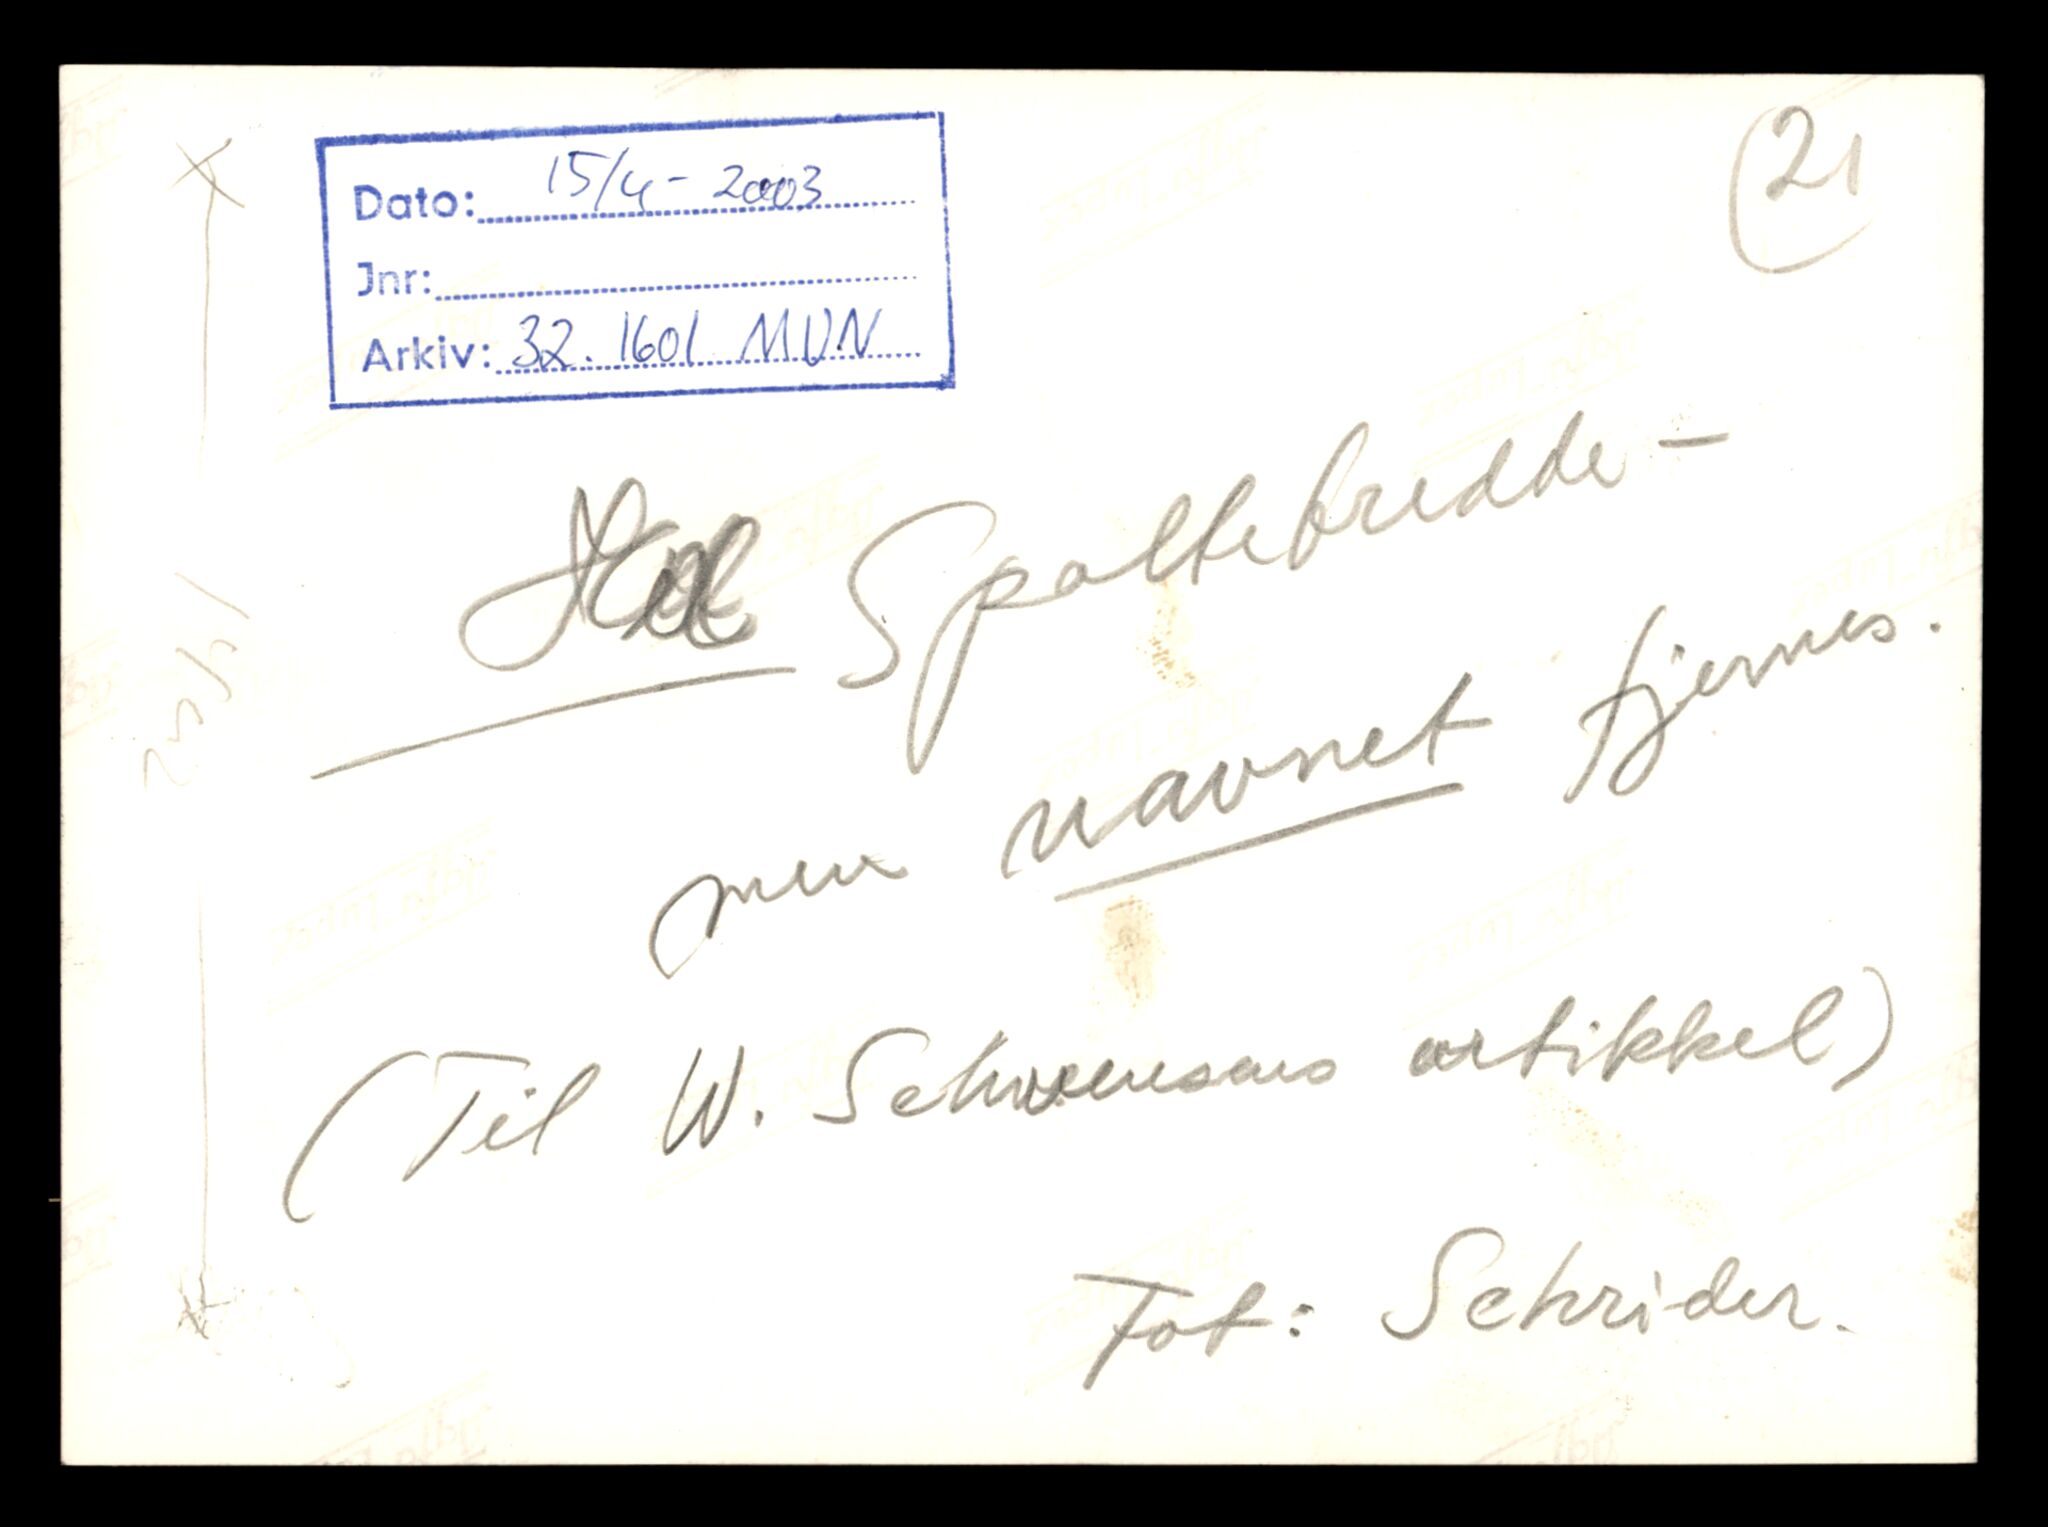 21
Dato: 15/4 - 2003
Jnr:
Arkiv: 32. 1601 MUN
Spaltebredde -
men navnet fjernes.
(Til W. artikkel)
Fot: Schrøder.